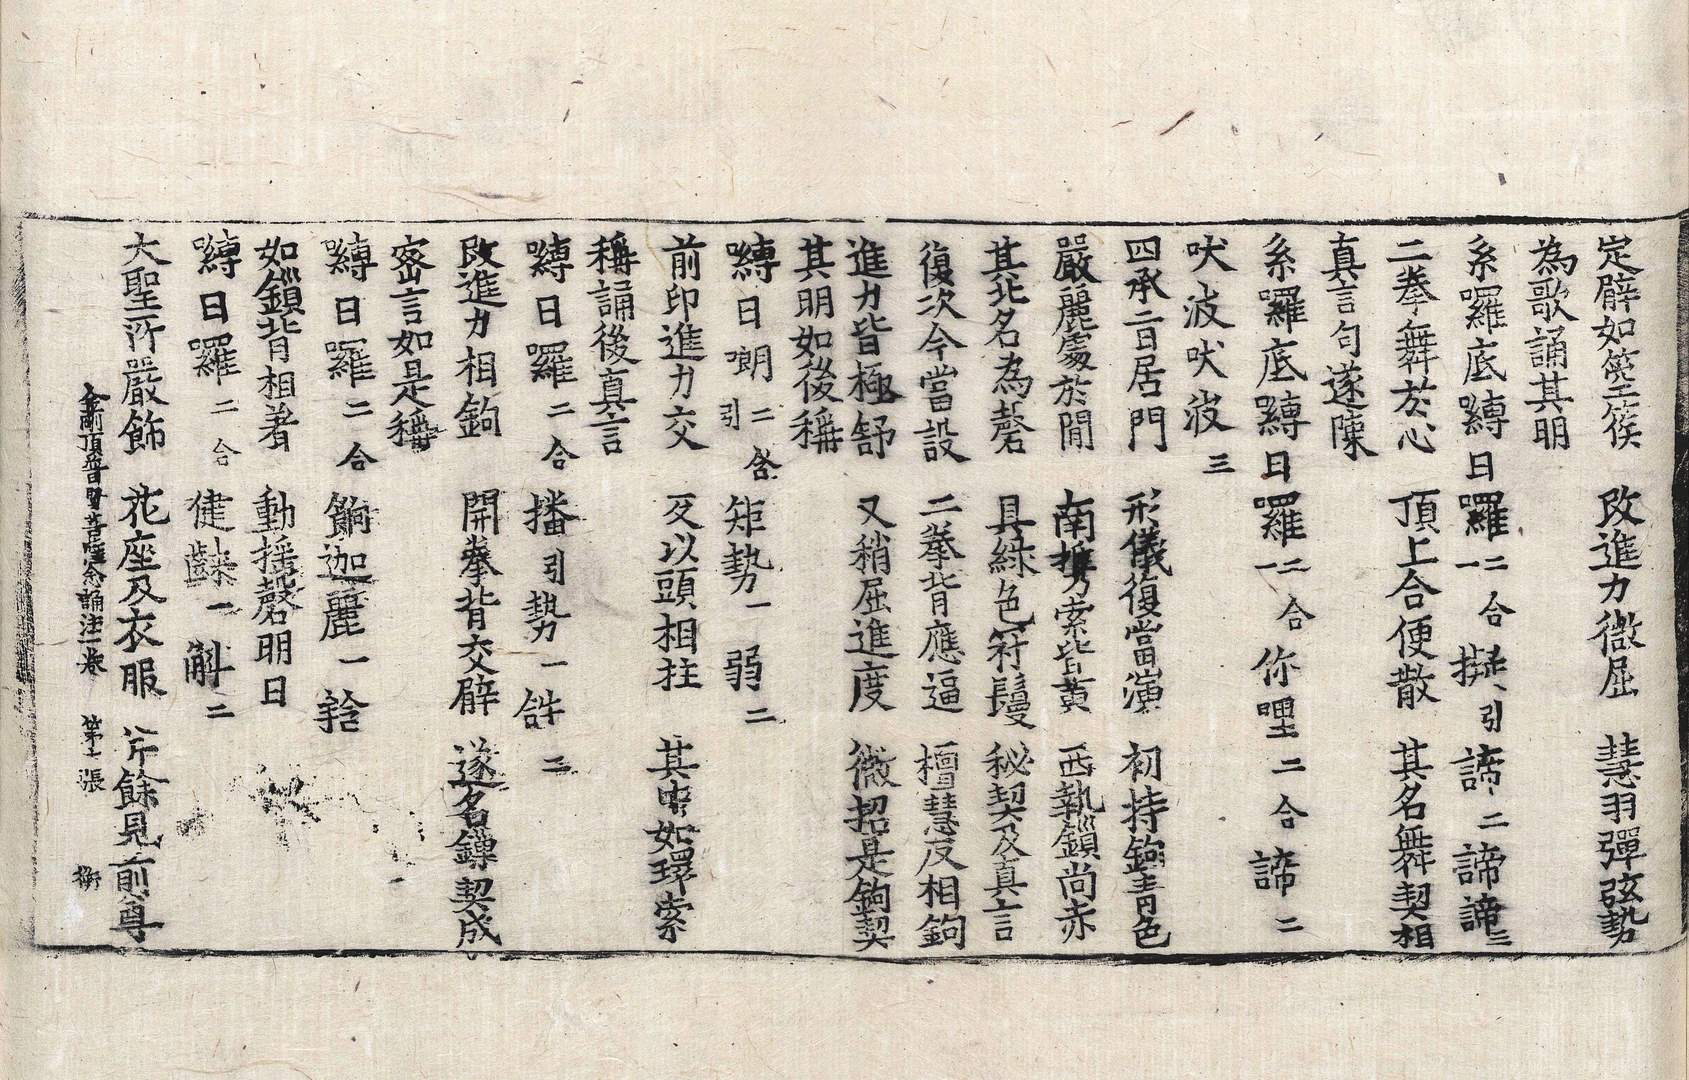 定臂如箜篌 改進力微屈 慧羽彈弦勢
為歌誦其明
系囉底嚩日囉二合一擬引諦二諦諦三
二拳舞於心 頂上合便散 其名舞契相
真言句遂陳
系囉底嚩日囉二合一你哩二合諦二
吠波吠波三
四承旨居門 形儀復當演 初持鉤青色
嚴麗處於閒 南摧索皆黃 西執鎖尚赤
其北名為磬 具綠色衧鬘 秘契及真言
復次今當設 二拳背應逼 檀慧反相鉤
進力皆極舒 又稍屈進度 微招是鉤契
其明如後稱
嚩日囉二合引矩勢一弱二
前印進力交 反以頭相拄 其中如環索
稱誦後真言
嚩日囉二合播引勢一𤙖二
改進力相鉤 開拳背交臂 遂名鏁契成
密言如是稱
嚩日囉二合餉迦麗一鋡
如鎖背相著 動搖磬明曰
嚩日囉二合健䬷一斛二
大聖所嚴飾 花座及衣服 䒭餘見前尊
金剛頂普賢菩薩念誦法一卷 第七張 衡